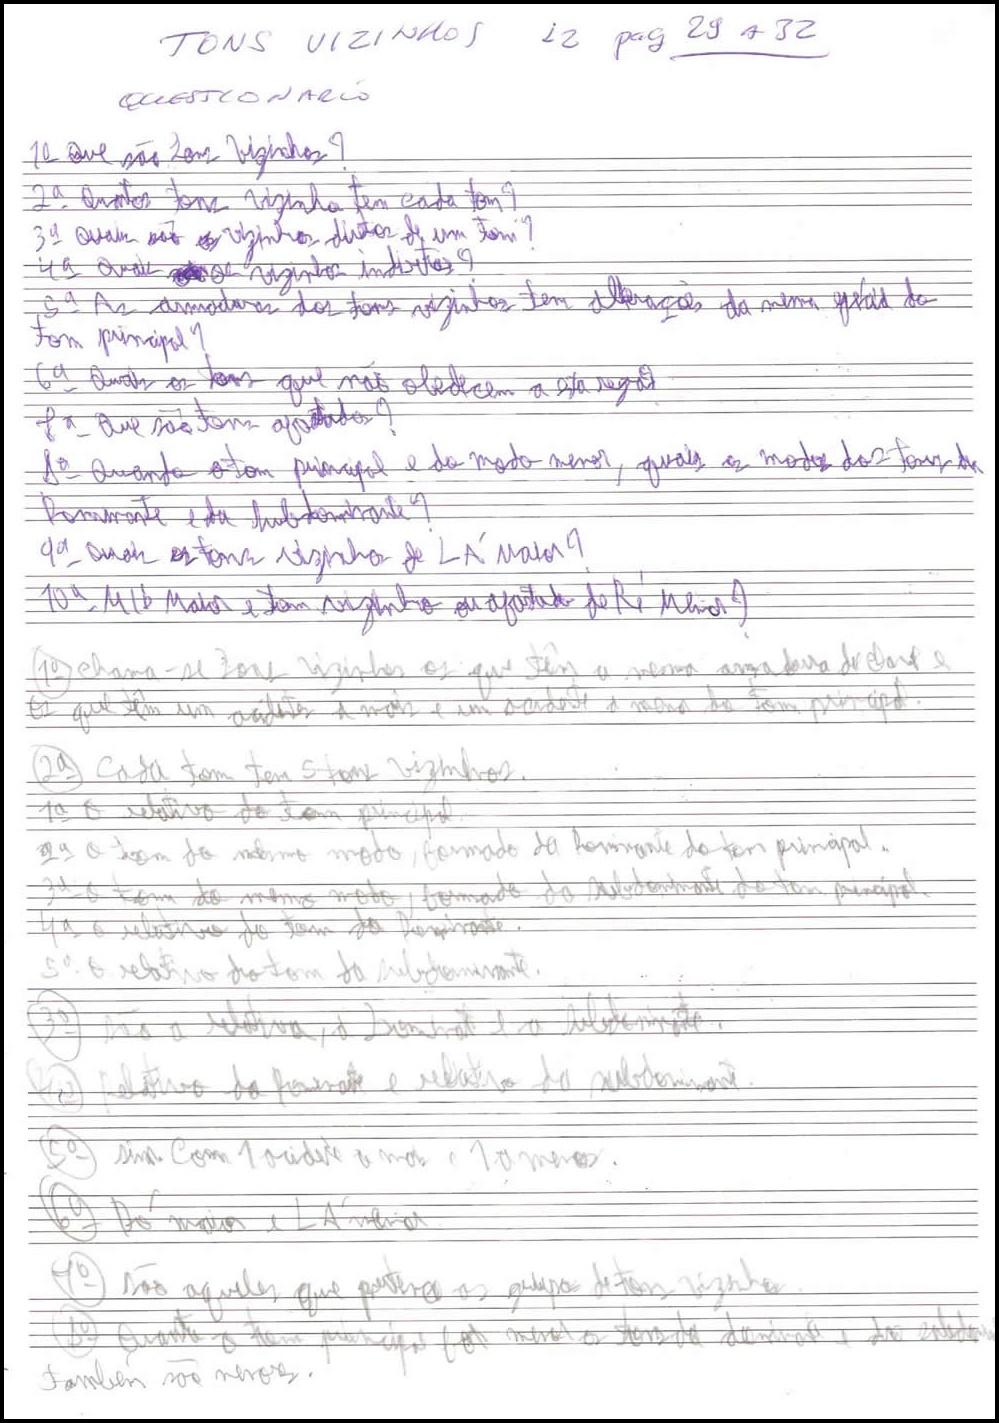 TONS VIZINHOS iz pag 29 A 32
QUESTIONARIO
1ª Que são Tons Vizinhos?
2ª Quantos tons vizinho tem cada tom?
3ª Quais são os vizinhos diretos de um Tom?
4ª Quais os vizinhos indiretos?
5ª As armaduras dos tons vizinhos tem alterações da mema do
Tom principal?
6ª Quais os tons que não obedecem a esta regra?
7ª Que são tons afastados?
8ª Quando o tom principal e do modo menor, quais os modos dos tons da
Dominante e da Subdominante?
9ª Quais os tons vizinho de LÁ Maior?
10ª MIb Maior e tom vizinho ou afastado de Ré Menor?
1º chama-se Tons vizinhos os que têm a mesma armadura de clave e
os que têm um acidente a mais e um acidente a menos do tom principal.
2º Cada tom tem 5 tons vizinhos.
1º O relativo do tom principal
2º o tom do mesmo modo, formado da Dominante do tom principal.
3º o tom do memo modo, formado da subdominante do tom principal.
4º o relativo do tom da Dominante.
5º o relativo do tom da subdominante.
3º são a relativa, a Dominante e a Subdominante.
4º Relativo da Dominante e relativo da subdominante.
5º sim. Com 1 acidente a mais e 1 a menos.
6º Dó maior e LÁ menor
7º São aqueles que os grupo de tons vizinho.
8º Quanto o tom principal for menor o tons da dominante e da
também são menores.